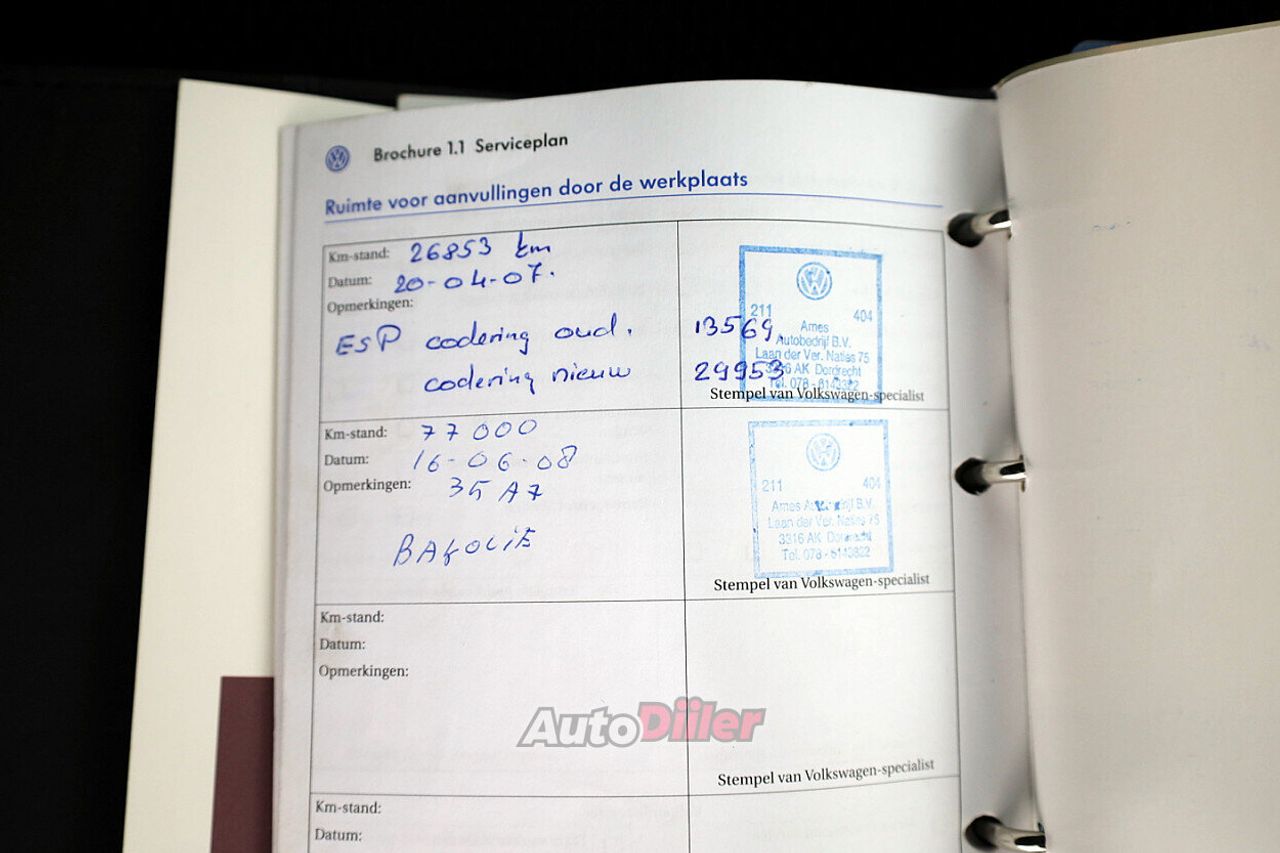 Brochure 1.1 Serviceplan
Ruimte voor aanvullingen door de werkplaats
Km-stand: 26853 km
Datum: 20-04-07.
Opmerkingen:
ESP codering oud. 13569
codering nieuw 29953
211 404
Ames
Autobedrijf B.V.
Laan der Ver. Naties 75
3316 AK Dordrecht
Tel. 078 - 6140322
Stempel van Volkswagen-specialist
Km-stand: 77000
Datum: 16-06-08
Opmerkingen: 35 A7
211 404
Ames B.V.
Laan der Ver. Naties 75
3316 AK Dordrecht
Tel. 078 -
Stempel van Volkswagen-specialist
Km-stand:
Datum:
Opmerkingen:
AutoDiiler
Stempel van Volkswagen-specialist
Km-stand:
Datum: